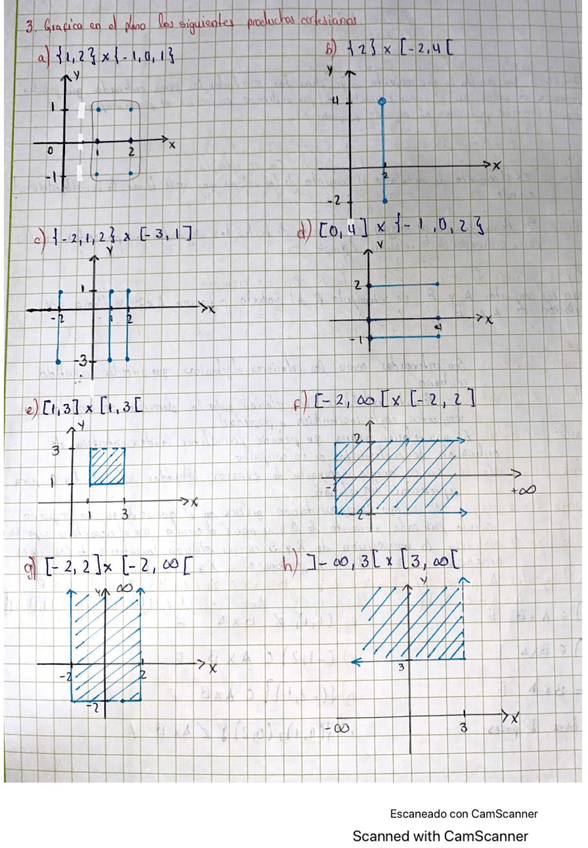 3. Grafica en el plano los siguientes productos cartesianos
a) {1,2} x {-1,0,1}
b) {2} x [-2,4[
y
1
0
1
2
x
-1
y
4
2
x
-2
c) {-2,1,2} x [-3,1]
d) [0,4] x {-1,0,2}
y
1
-2
1
2
x
-3
y
2
4
x
-1
e) [1,3] x [1,3[
f) [-2,∞[ x [-2,2]
y
3
1
1
3
x
2
-2
+∞
-2
g) [-2,2] x [-2,∞[
h) ]-∞,3[ x [3,∞[
y
∞
-2
2
x
-2
y
3
-∞
3
x
Escaneado con CamScanner
Scanned with CamScanner